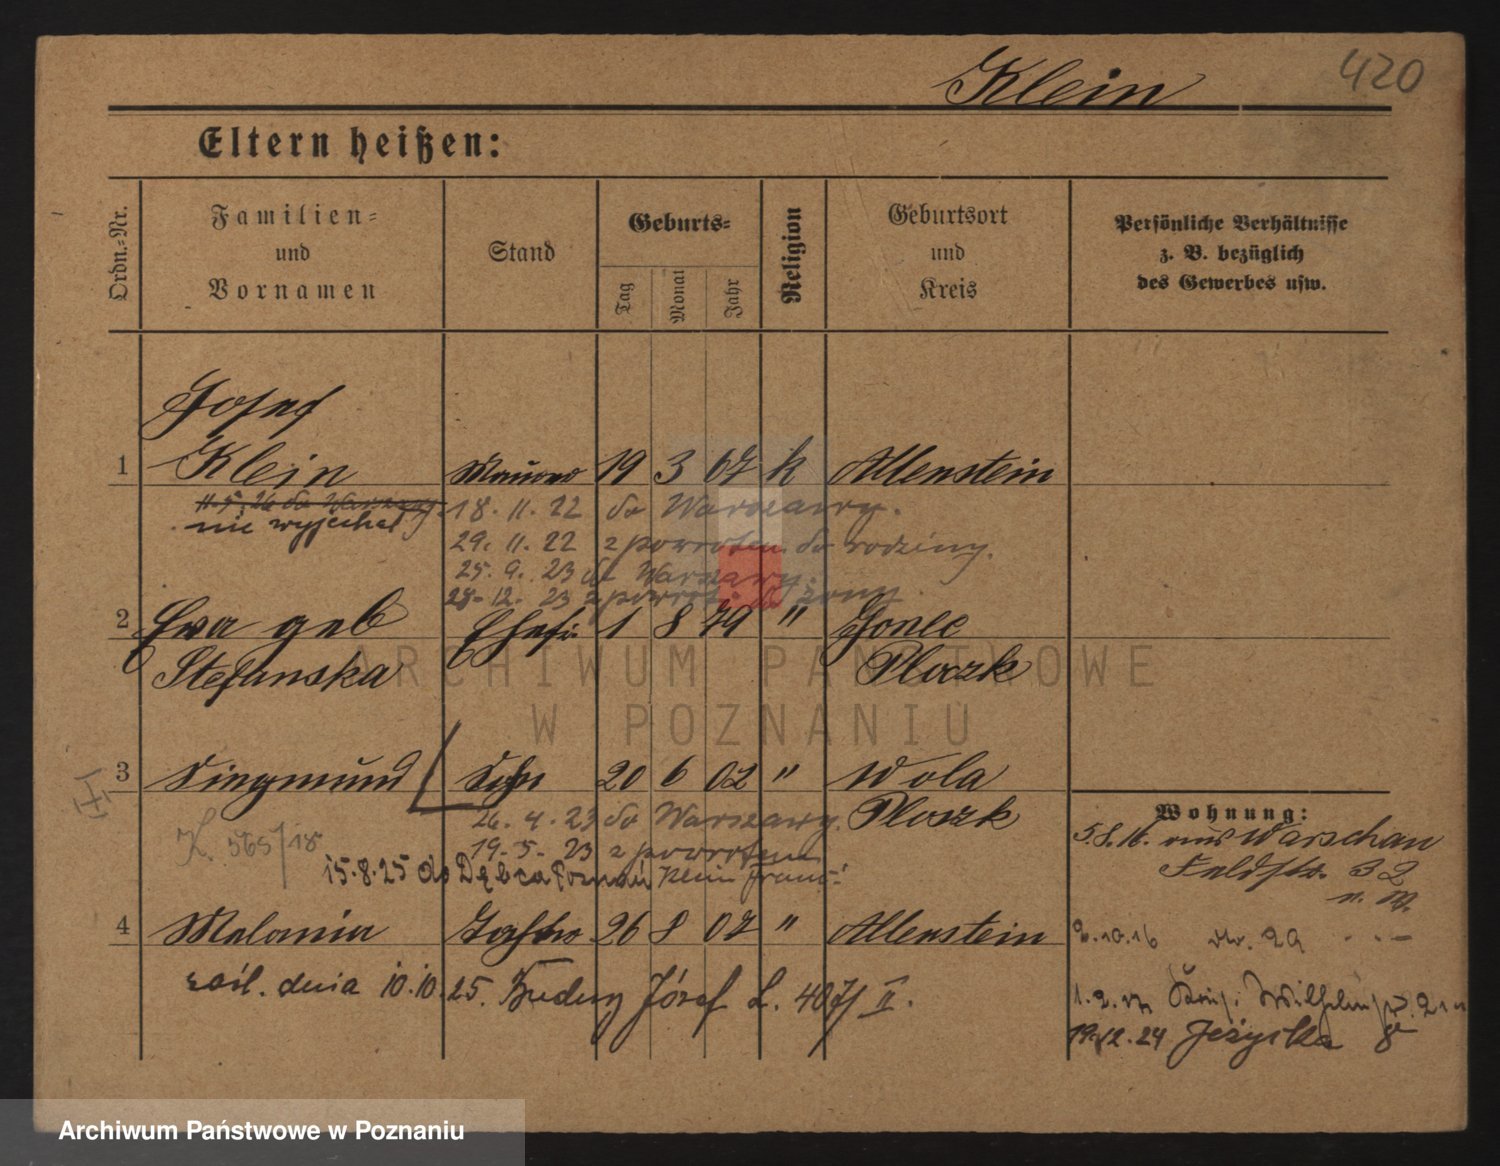 Klein 420
Eltern heißen:
Ordn.-Nr.
Familien-
und
Vornamen
Stand
Geburts-
Tag Monat Jahr
Religion
Geburtsort
und
Kreis
Persönliche Verhältnisse
z. B. bezüglich
des Gewerbes usw.
Josef
1 Klein 19 3 67 k Allenstein
11.5.26 do Warszawy 18. 11. 22 do Warszawy.
nie wyjechał
29. 11. 22 z powrotem do rodziny.
25. 9. 23 do Warszawy.
28. 12. 23 z powrot. do żony
2 Eva geb Ehefr 1 8 79 "
Stefanska Plozk
3 Singmund Sohn 20 6 02 " Wola
Plozk
26. 4. 23 do Warszawy.
K. 565/18
19. 5. 23 z powrotem
15.8.25 do Dębca Poznań Klein Franc.
4 Melania 26 8 07 " Allenstein
zaśl. dnia 10.10.25. Józef L. 407/II.
Wohnung:
5.8.16. aus Warschau
Feldstr. 32
2.10.16 29
1.2.17 Wilhelm
19.12.24 Jeżycka 8
ARCHIWUM PAŃSTWOWE
W POZNANIU
Archiwum Państwowe w Poznaniu